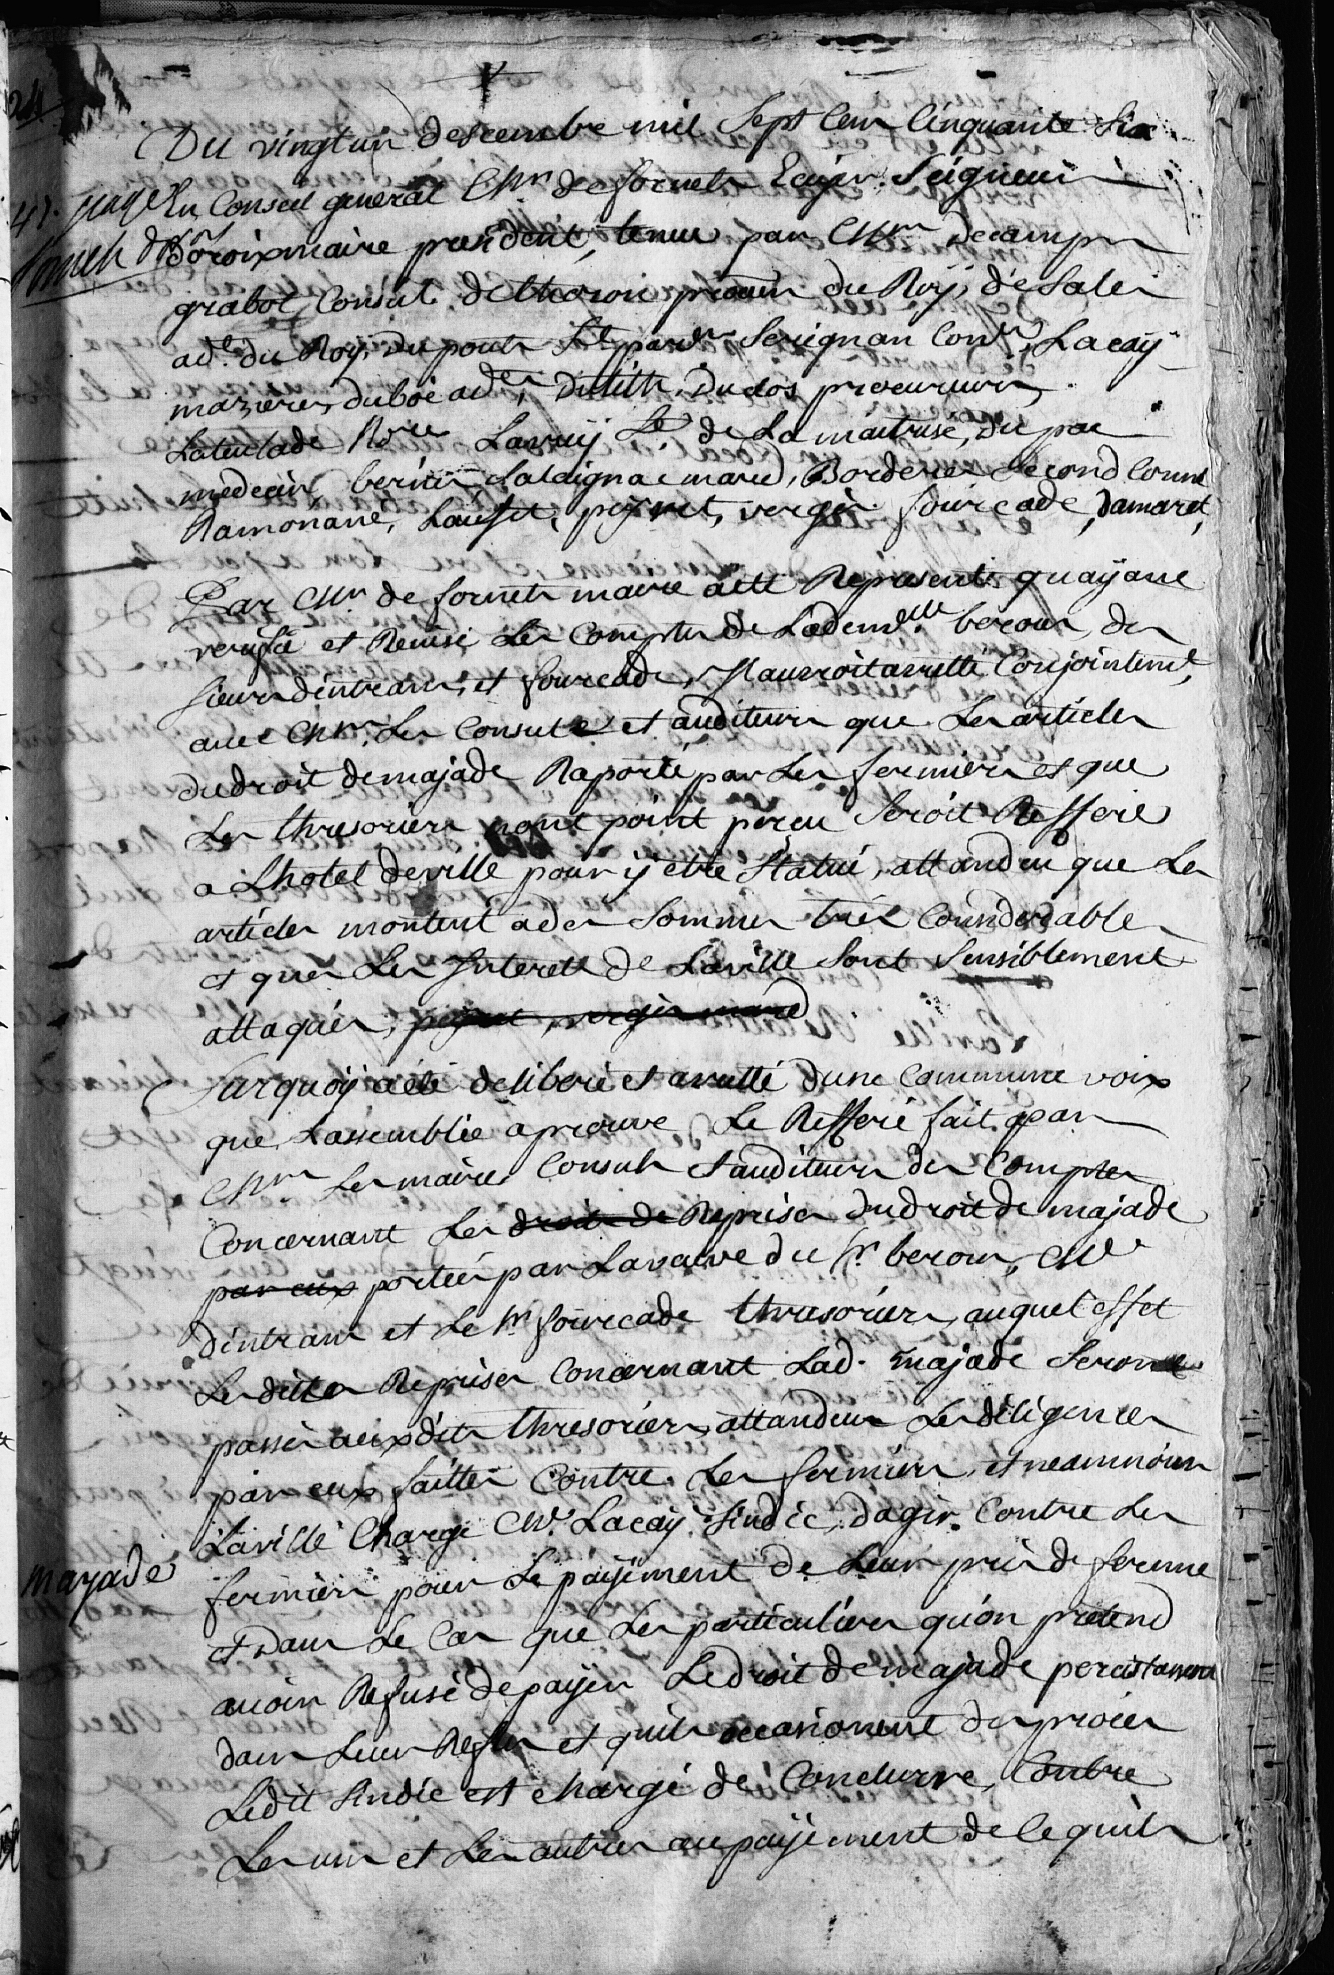 Du vingt un descembre mil Sept Cen Cinquante Six
En Conseil general Mr de fornets Ecuyer Seigneur
Doroix maire president, tenue par Mrs Decamps
grabot Consul, de theron procur du Roy, de Sales
adt du Roy, Du pouts St pardr Serignan Conr, Lacay
mazieres, duboe adts, Dulith, Dudos procureurs
Lateulade Nore Laruij Lt de La maitrise, du pac
medecin, bernin Saldaignac mared, Borderes Second Comis
Ramonane, Lausset, peyret, verges fourcade, Damaret,
Par Mr de fornets maire a eté Represente quayane
veriffié et Revisé Les Comptes de Lademlle berour, des
Sieurs dintrans, et fourcade, Il auroit arretté Conjointemt
avec Mrs Les Consuls et auditeurs que Les articles
du droit de majade Raporté par Les fermiers et que
Les thresoriers nont point perceu Seroit Refferé
a Lhotel de ville pour ij etre Statué, attandeu que Les
articles montent a des Sommes trés Considerables
et que Les Interets de Laville Sont Sensiblement
attaqués, peyret verges mared
Surquoy a eté deliberé et arretté dune Commune voix
que Lassemblée aprouve Le Refferé fait par
Mrs Les maire Consuls et auditeurs des Comptes
Concernant Les droits de Reprises du droit de majade
par eux portées par La veuve du Sr berour, Mr
dintrans et Le Sr fourcade thresoriers, auquel effet
Les dittes Reprises Concernant Lad. majade Seront
passés aux dits thresoriers, attandeu Les diligences
par eux faittes Contre Les fermiers, et neammoins
Laville Charge Mr Lacay Sindic, dagir Contre Les
fermiers pour Le payement de Leur prix de ferme
et Dans Le Cas que Les particuliers quon pretend
avoir Refusé de payer Le droit de majade
dans Leur Reffus et quils occasionent des procés
Ledit Sindic est chargé de Conclurre Contre
Les uns et Les autres au payement de Ce quils
majade